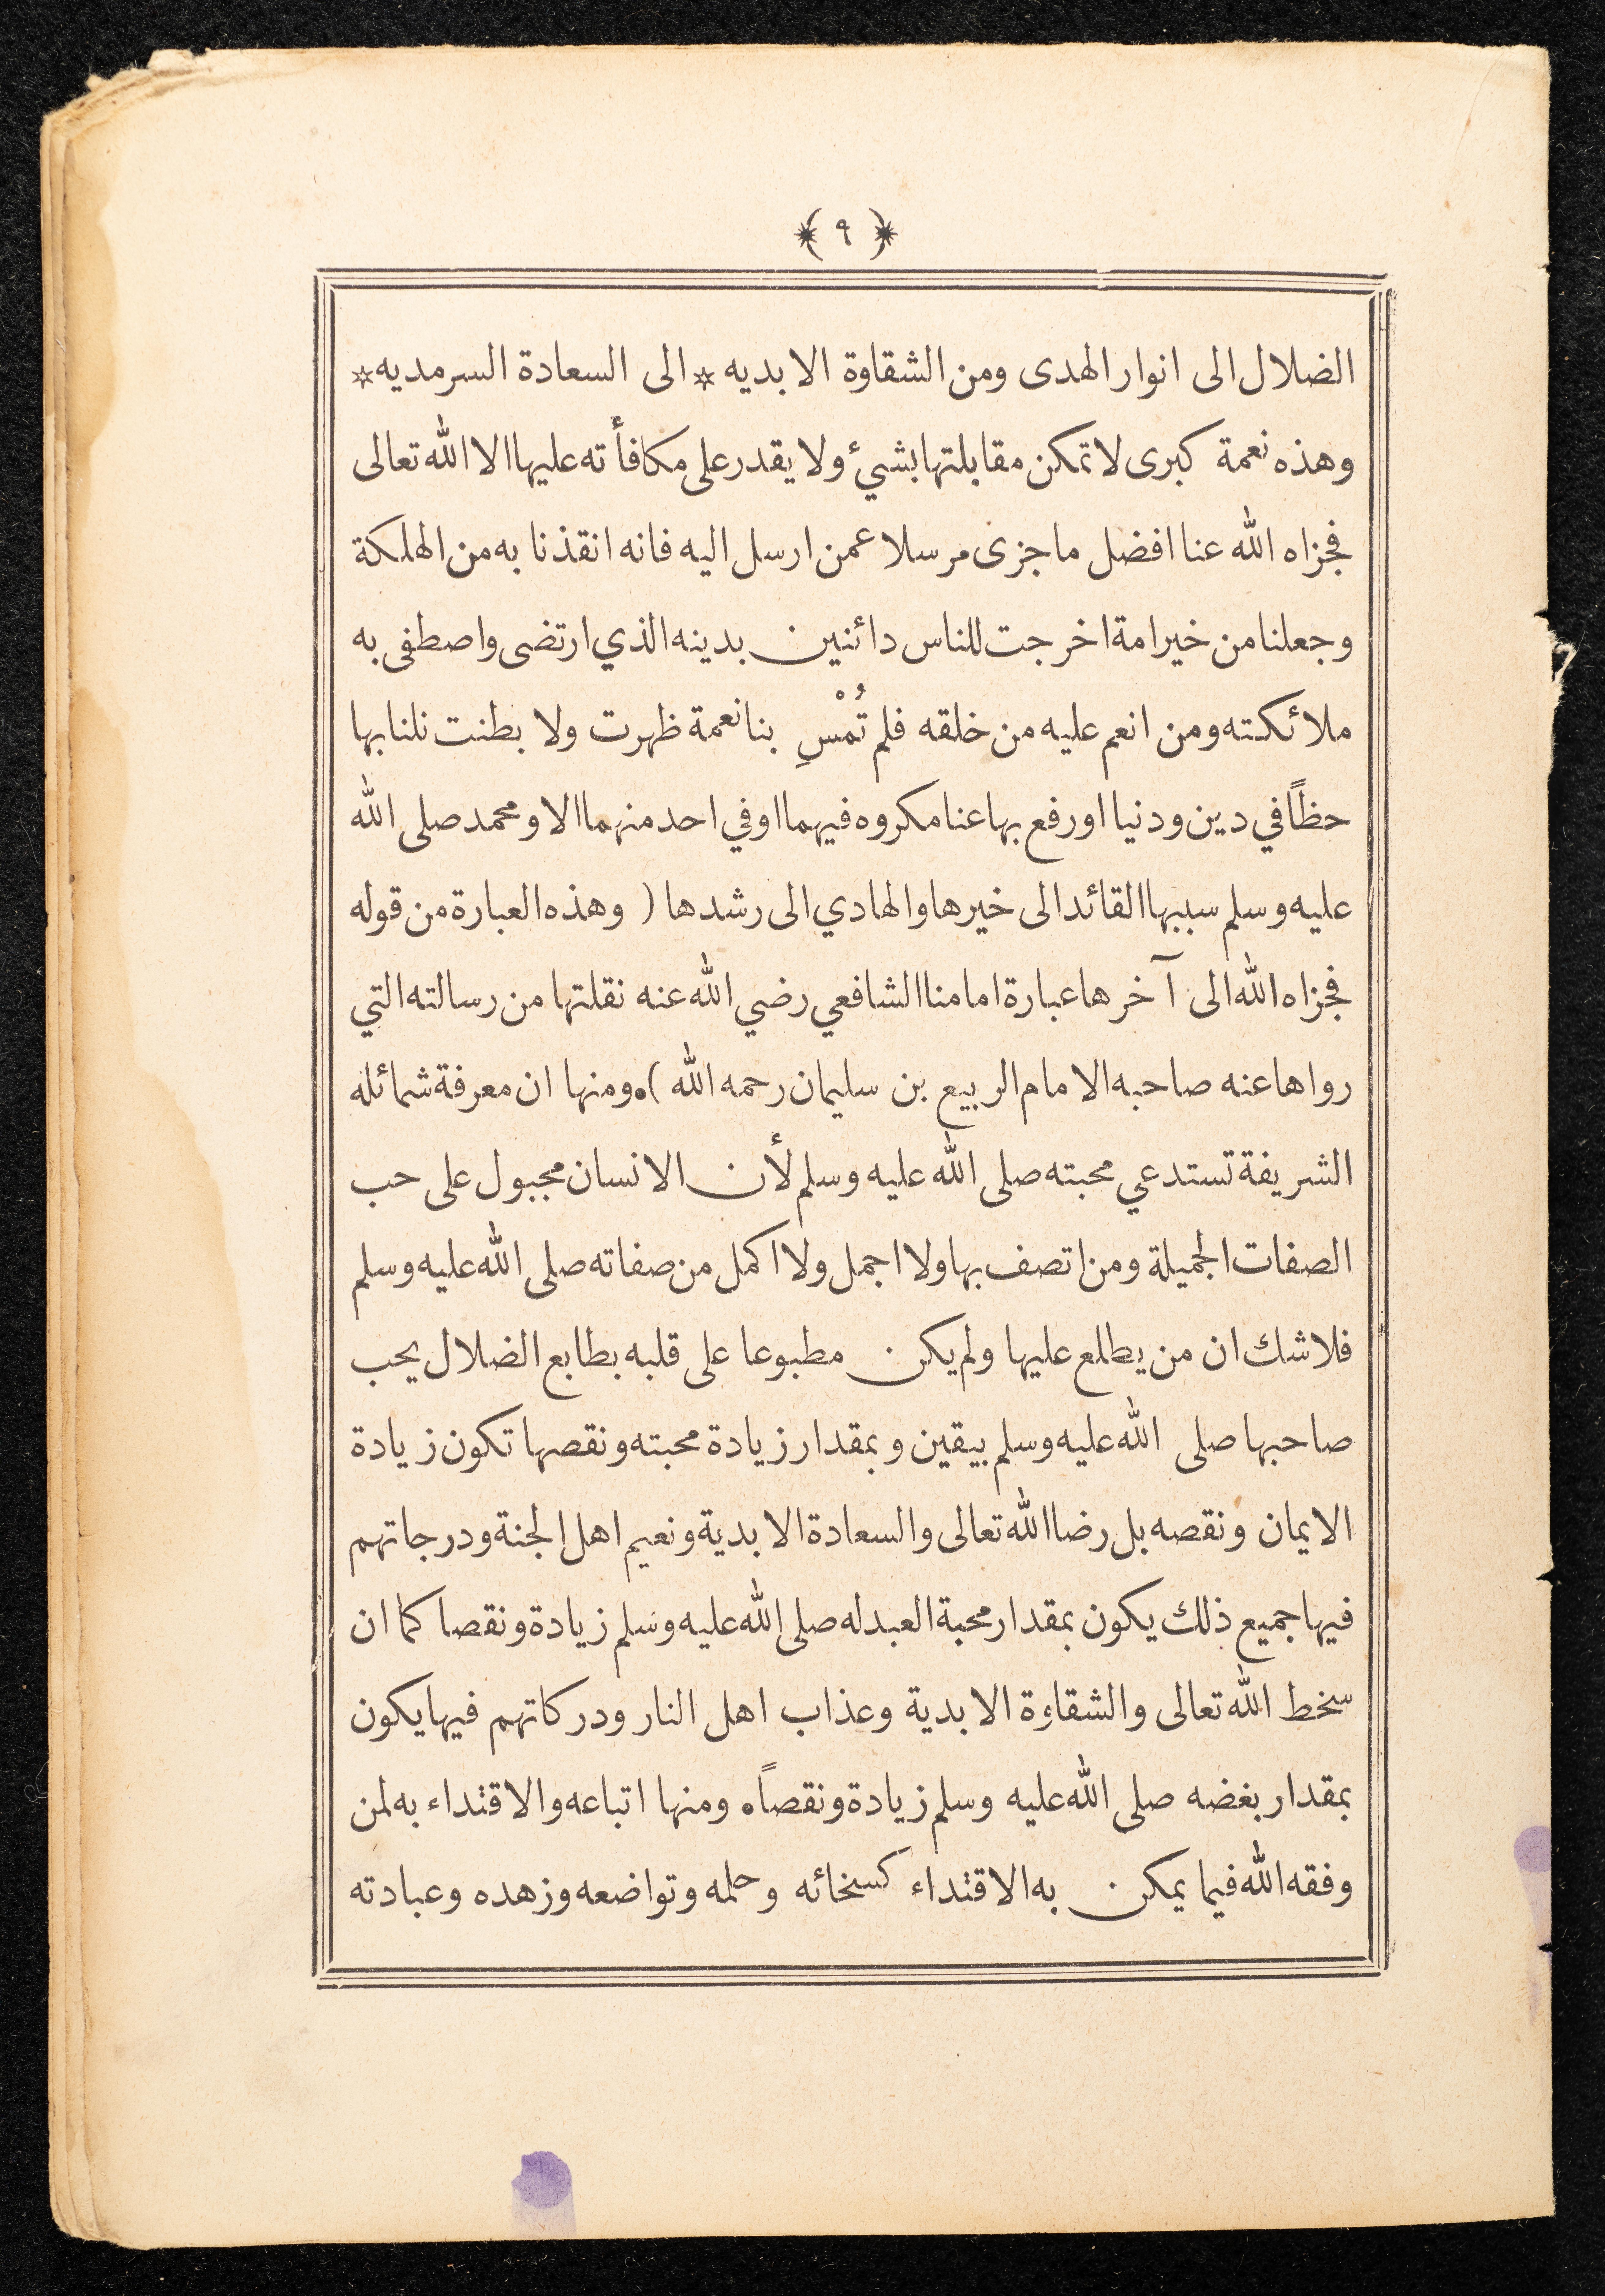 ﴿ ٩ ﴾
الضلال الى انوار الهدى ومن الشقاوة الابديه * الى السعادة السرمديه *
وهذه نعمة كبرى لا تمكن مقابلتها بشيءٍ ولا يقدر على مكافأته عليها الا الله تعالى
فجزاه الله عنا افضل ما جزى مرسلا عمن ارسل اليه فانه انقذنا به من الهلكة
وجعلنا من خير امة اخرجت للناس دائنين بدينه الذي ارتضى واصطفى به
ملائكته ومن انعم عليه من خلقه فلم تُمْسِ بنا نعمة ظهرت ولا بطنت نلنا بها
حظاً في دين ودنيا او رفع بها عنا مكروه فيهما او في احد منهما الا ومحمد صلى الله
عليه وسلم سببها القائد الى خيرها والهادي الى رشدها ( وهذه العبارة من قوله
فجزاه الله الى آخرها عبارة امامنا الشافعي رضي الله عنه نقلتها من رسالته التي
رواها عنه صاحبه الامام الربيع بن سليمان رحمه الله ). ومنها ان معرفة شمائله
الشريفة تستدعي محبته صلى الله عليه وسلم لأن الانسان مجبول على حب
الصفات الجميلة ومن اتصف بها ولا اجمل ولا اكمل من صفاته صلى الله عليه وسلم
فلا شك ان من يطلع عليها ولم يكن مطبوعا على قلبه بطابع الضلال يحب
صاحبها صلى الله عليه وسلم بيقين وبمقدار زيادة محبته ونقصها تكون زيادة
الايمان ونقصه بل رضا الله تعالى والسعادة الابدية ونعيم اهل الجنة ودرجاتهم
فيها جميع ذلك يكون بمقدار محبة العبد له صلى الله عليه وسلم زيادة ونقصا كما ان
سخط الله تعالى والشقاوة الابدية وعذاب اهل النار ودركاتهم فيها يكون
بمقدار بغضه صلى الله عليه وسلم زيادة ونقصاً. ومنها اتباعه والاقتداء به لمن
وفقه الله فيما يمكن به الاقتداء كسخائه وحلمه وتواضعه وزهده وعبادته